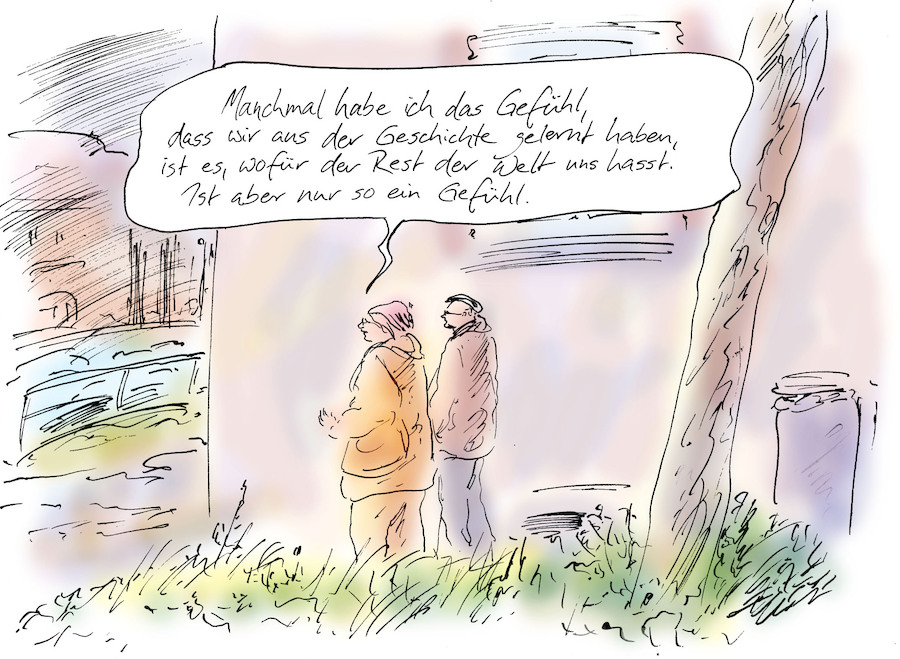 Manchmal habe ich das Gefühl,
dass wir aus der Geschichte gelernt haben,
ist es, wofür der Rest der Welt uns hasst.
Ist aber nur so ein Gefühl.